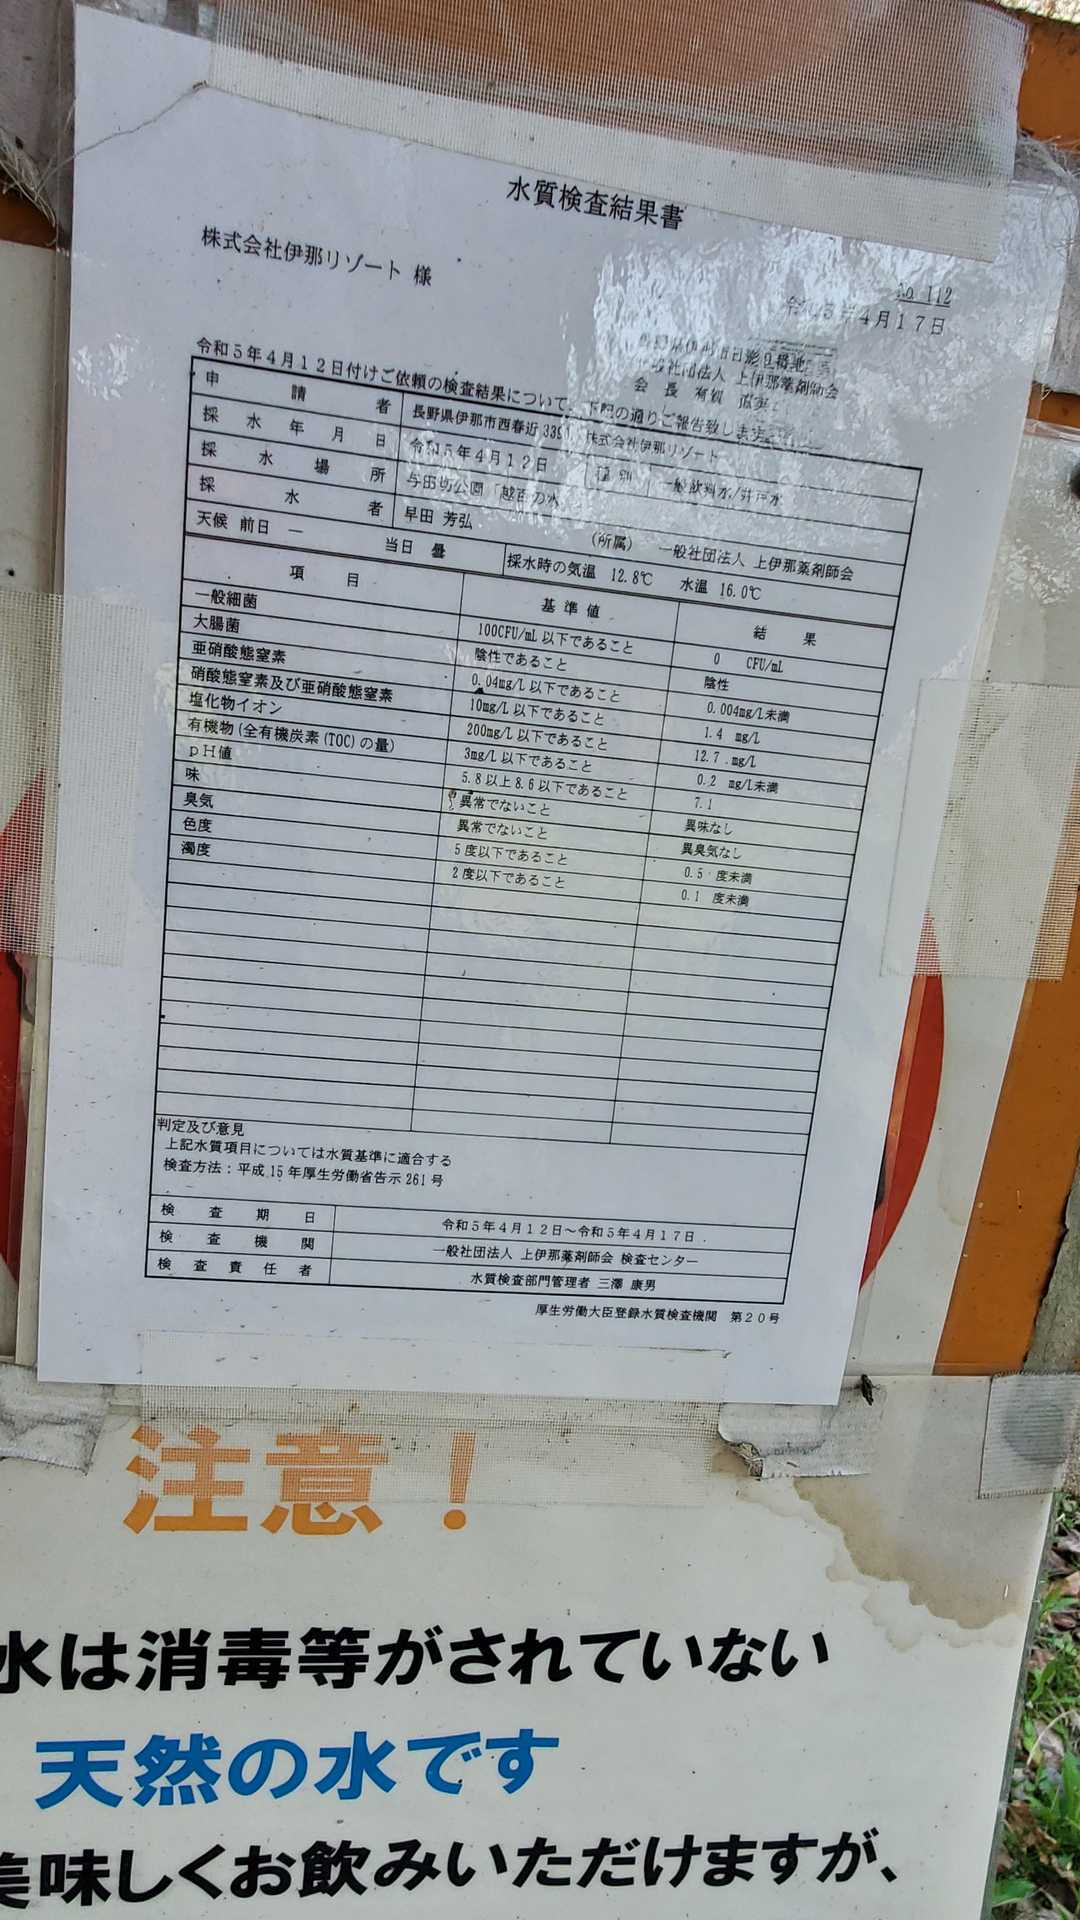 水質検査結果書
株式会社伊那リゾート 様
No. 112
令和5年4月17日
一般社団法人 上伊那薬剤師会
会 長 有賀
令和5年4月12日付けご依頼の検査結果について、下記の通りご報告致します
申 請 者 長野県伊那市西春近 339 株式会社伊那リゾート
採 水 年 月 日 令和5年4月12日 種 別 一般飲料水/井戸水
採 水 場 所 与田切公園「越百の水」
採 水 者 早田 芳弘 (所属) 一般社団法人 上伊那薬剤師会
天候 前日 ― 当日 曇 採水時の気温 12.8℃ 水温 16.0℃
項 目 基 準 値 結 果
一般細菌 100CFU/mL 以下であること 0 CFU/mL
大腸菌 陰性であること 陰性
亜硝酸態窒素 0.04mg/L 以下であること 0.004mg/L未満
硝酸態窒素及び亜硝酸態窒素 10mg/L 以下であること 1.4 mg/L
塩化物イオン 200mg/L 以下であること 12.7 mg/L
有機物(全有機炭素(TOC)の量) 3mg/L 以下であること 0.2 mg/L未満
pH値 5.8以上8.6以下であること 7.1
味 異常でないこと 異味なし
臭気 異常でないこと 異臭気なし
色度 5度以下であること 0.5 度未満
濁度 2度以下であること 0.1 度未満
判定及び意見
上記水質項目については水質基準に適合する
検査方法：平成15年厚生労働省告示261号
検 査 期 日 令和5年4月12日～令和5年4月17日
検 査 機 関 一般社団法人 上伊那薬剤師会 検査センター
検 査 責 任 者 水質検査部門管理者 三澤 康男
厚生労働大臣登録水質検査機関 第20号
注意！
水は消毒等がされていない
天然の水です
美味しくお飲みいただけますが、